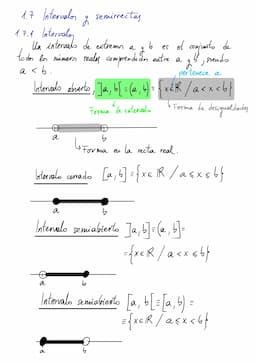 1.7 Intervalos y semirrectas
1.7.1 Intervalos
Un intervalo de extremos a y b es el conjunto de
todos los números reales comprendidos entre a y b, siendo
a < b.
pertenece a
Intervalo abierto, ]a, b[ = (a, b) = {x∈ℝ / a < x < b}
Forma de intervalo
Forma de desigualdades
a b
Forma en la recta real.
Intervalo cerrado [a, b] = {x∈ℝ / a ≤ x ≤ b}
a b
Intervalo semiabierto ]a, b] = (a, b] =
= {x∈ℝ / a < x ≤ b}
a b
Intervalo semiabierto [a, b[ = [a, b) =
= {x∈ℝ / a ≤ x < b}
a b